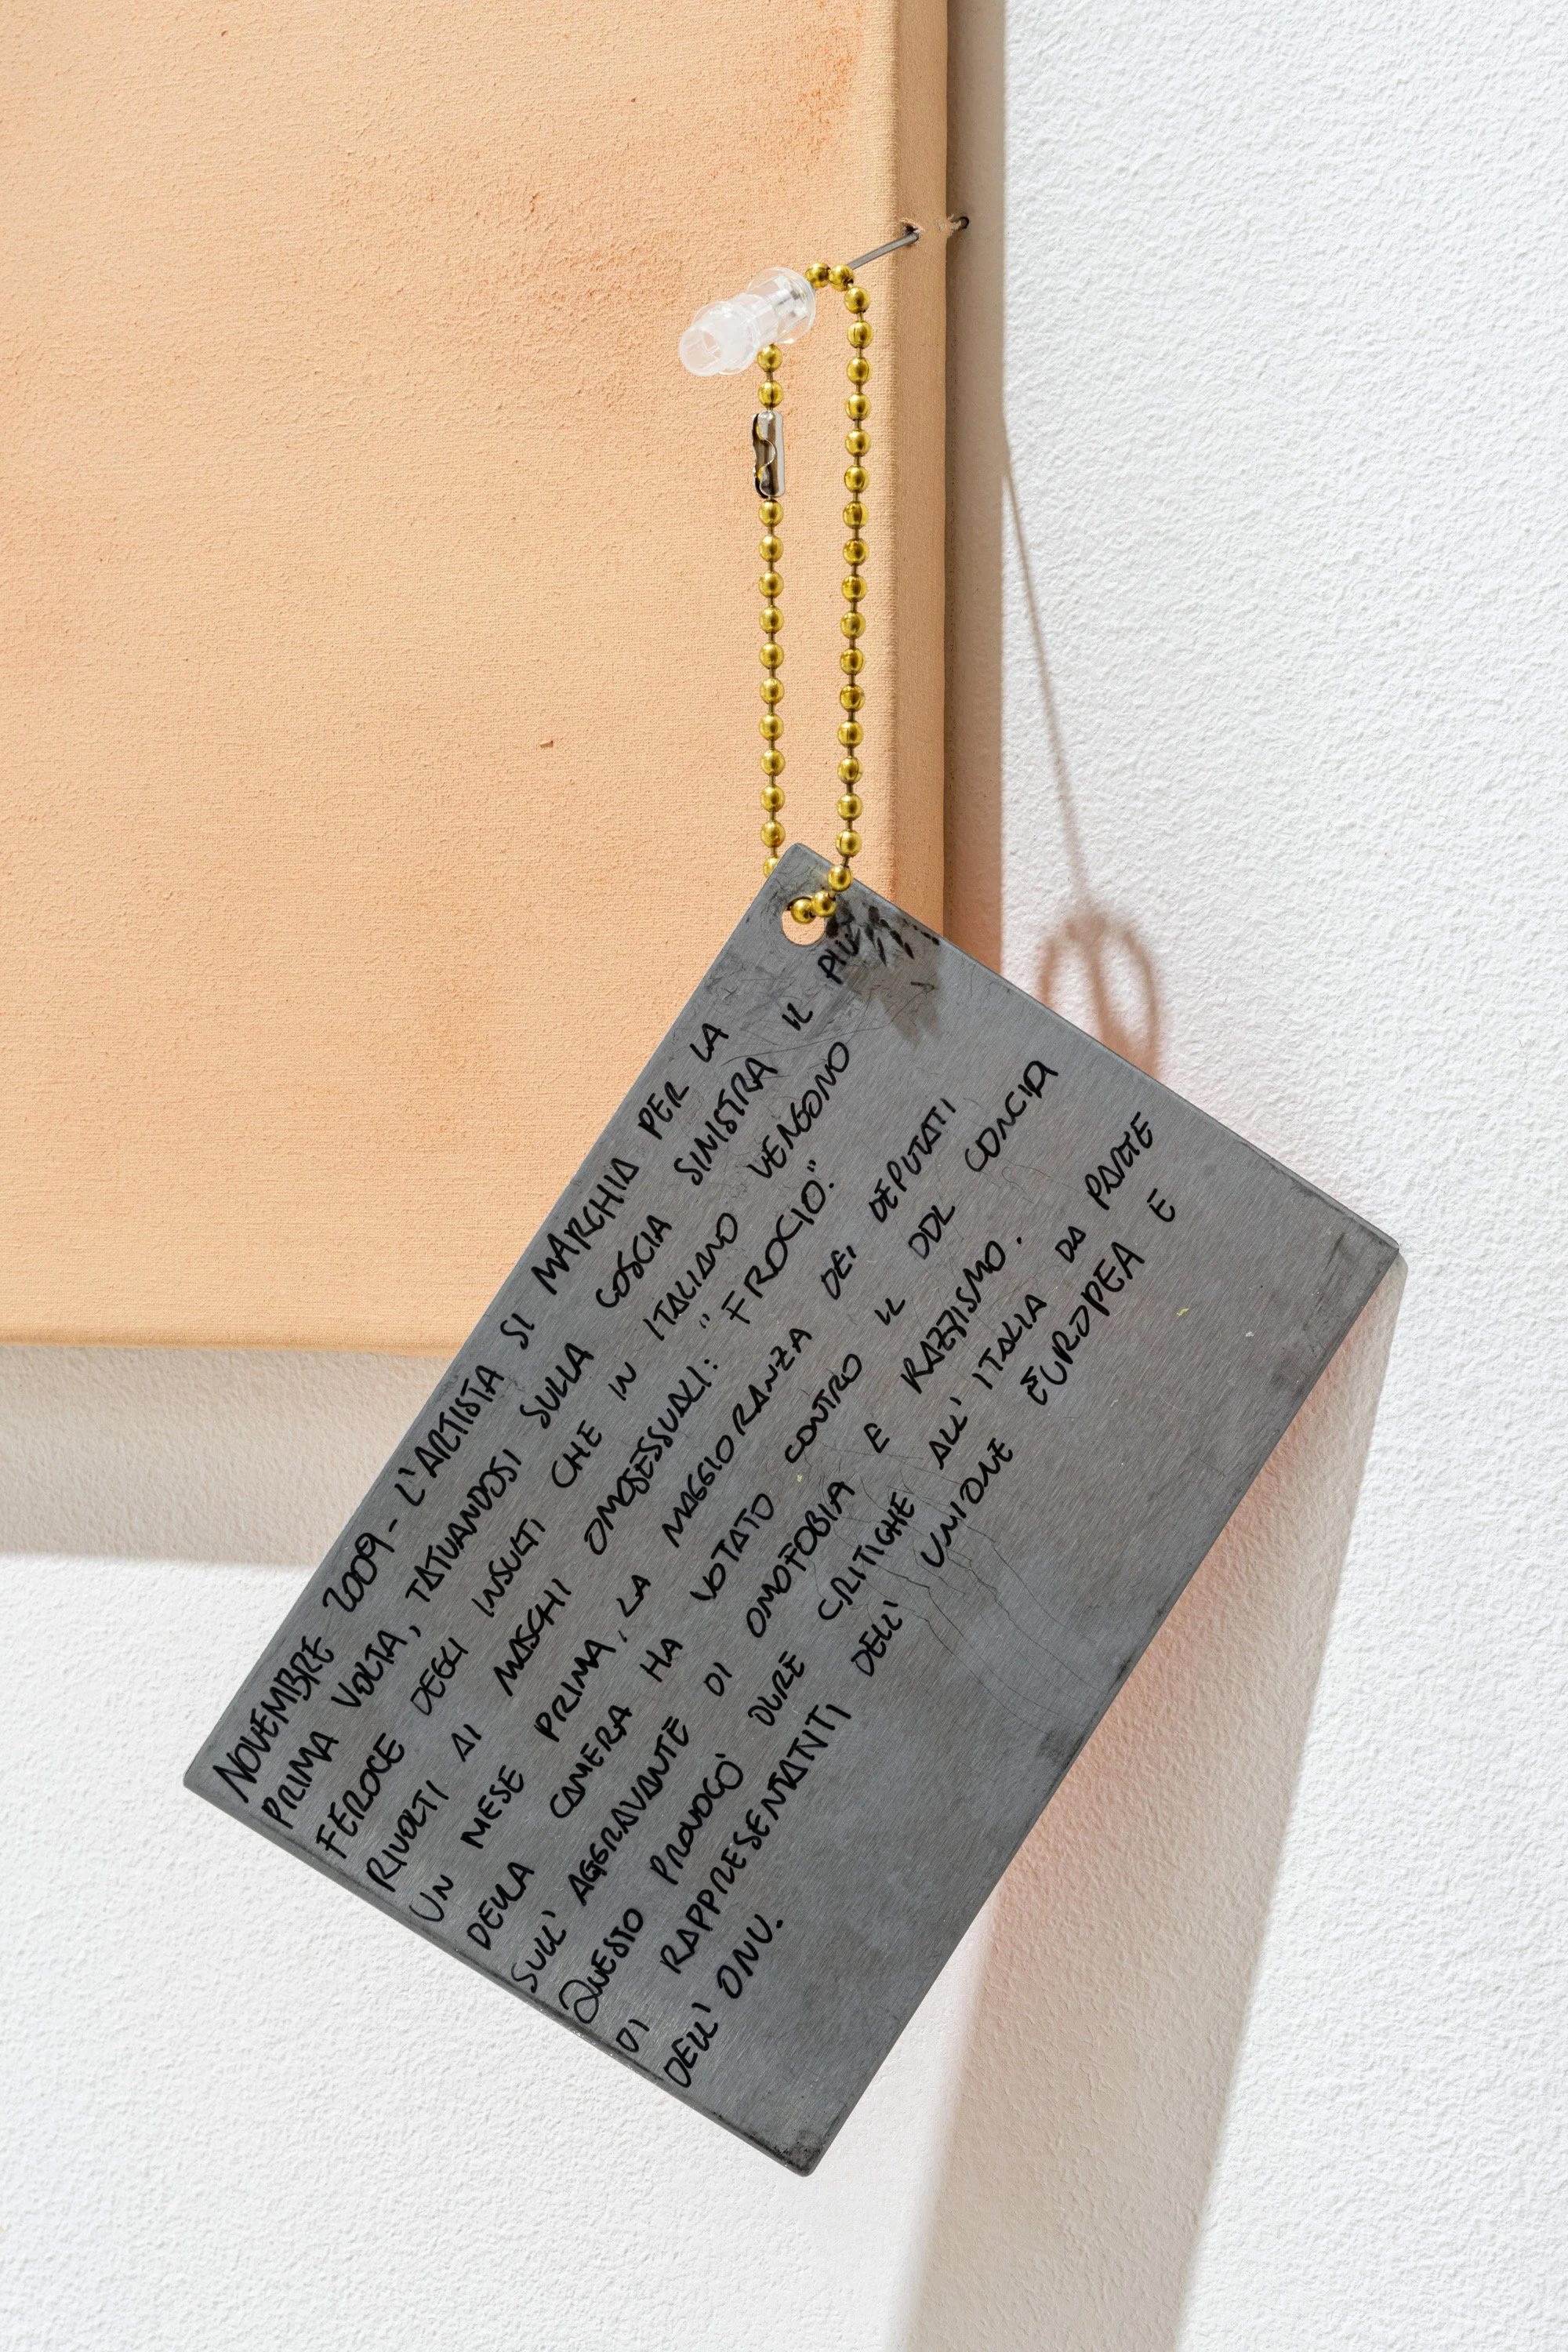 NOVEMBRE 2009 - L'ARTISTA SI MARCHIA PER LA
PRIMA VOLTA, TATUANDOSI SULLA COSCIA SINISTRA IL PIÙ
FEROCE DEGLI INSULTI CHE IN ITALIANO VENGONO
RIVOLTI AI MASCHI OMOSESSUALI: "FROCIO."
UN MESE PRIMA, LA MAGGIORANZA DEI DEPUTATI
DELLA CAMERA HA VOTATO CONTRO IL DDL CONCIA
SULL'AGGRAVANTE DI OMOFOBIA E RAZZISMO.
QUESTO PROVOCÒ DURE CRITICHE ALL'ITALIA DA PARTE
DI RAPPRESENTANTI DELL'UNIONE EUROPEA E
DELL'ONU.